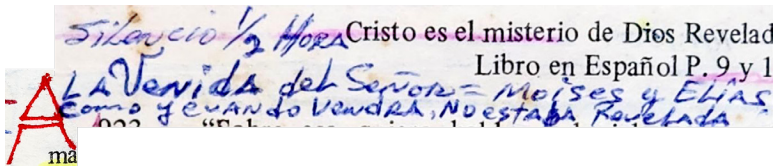 Silencio 1/2 Hora Cristo es el misterio de Dios Revelad
Libro en Español P. 9 y 1
A LA Venida del Señor = Moises y Elias
Como y cuando vendra, No estaba Revelada
ma